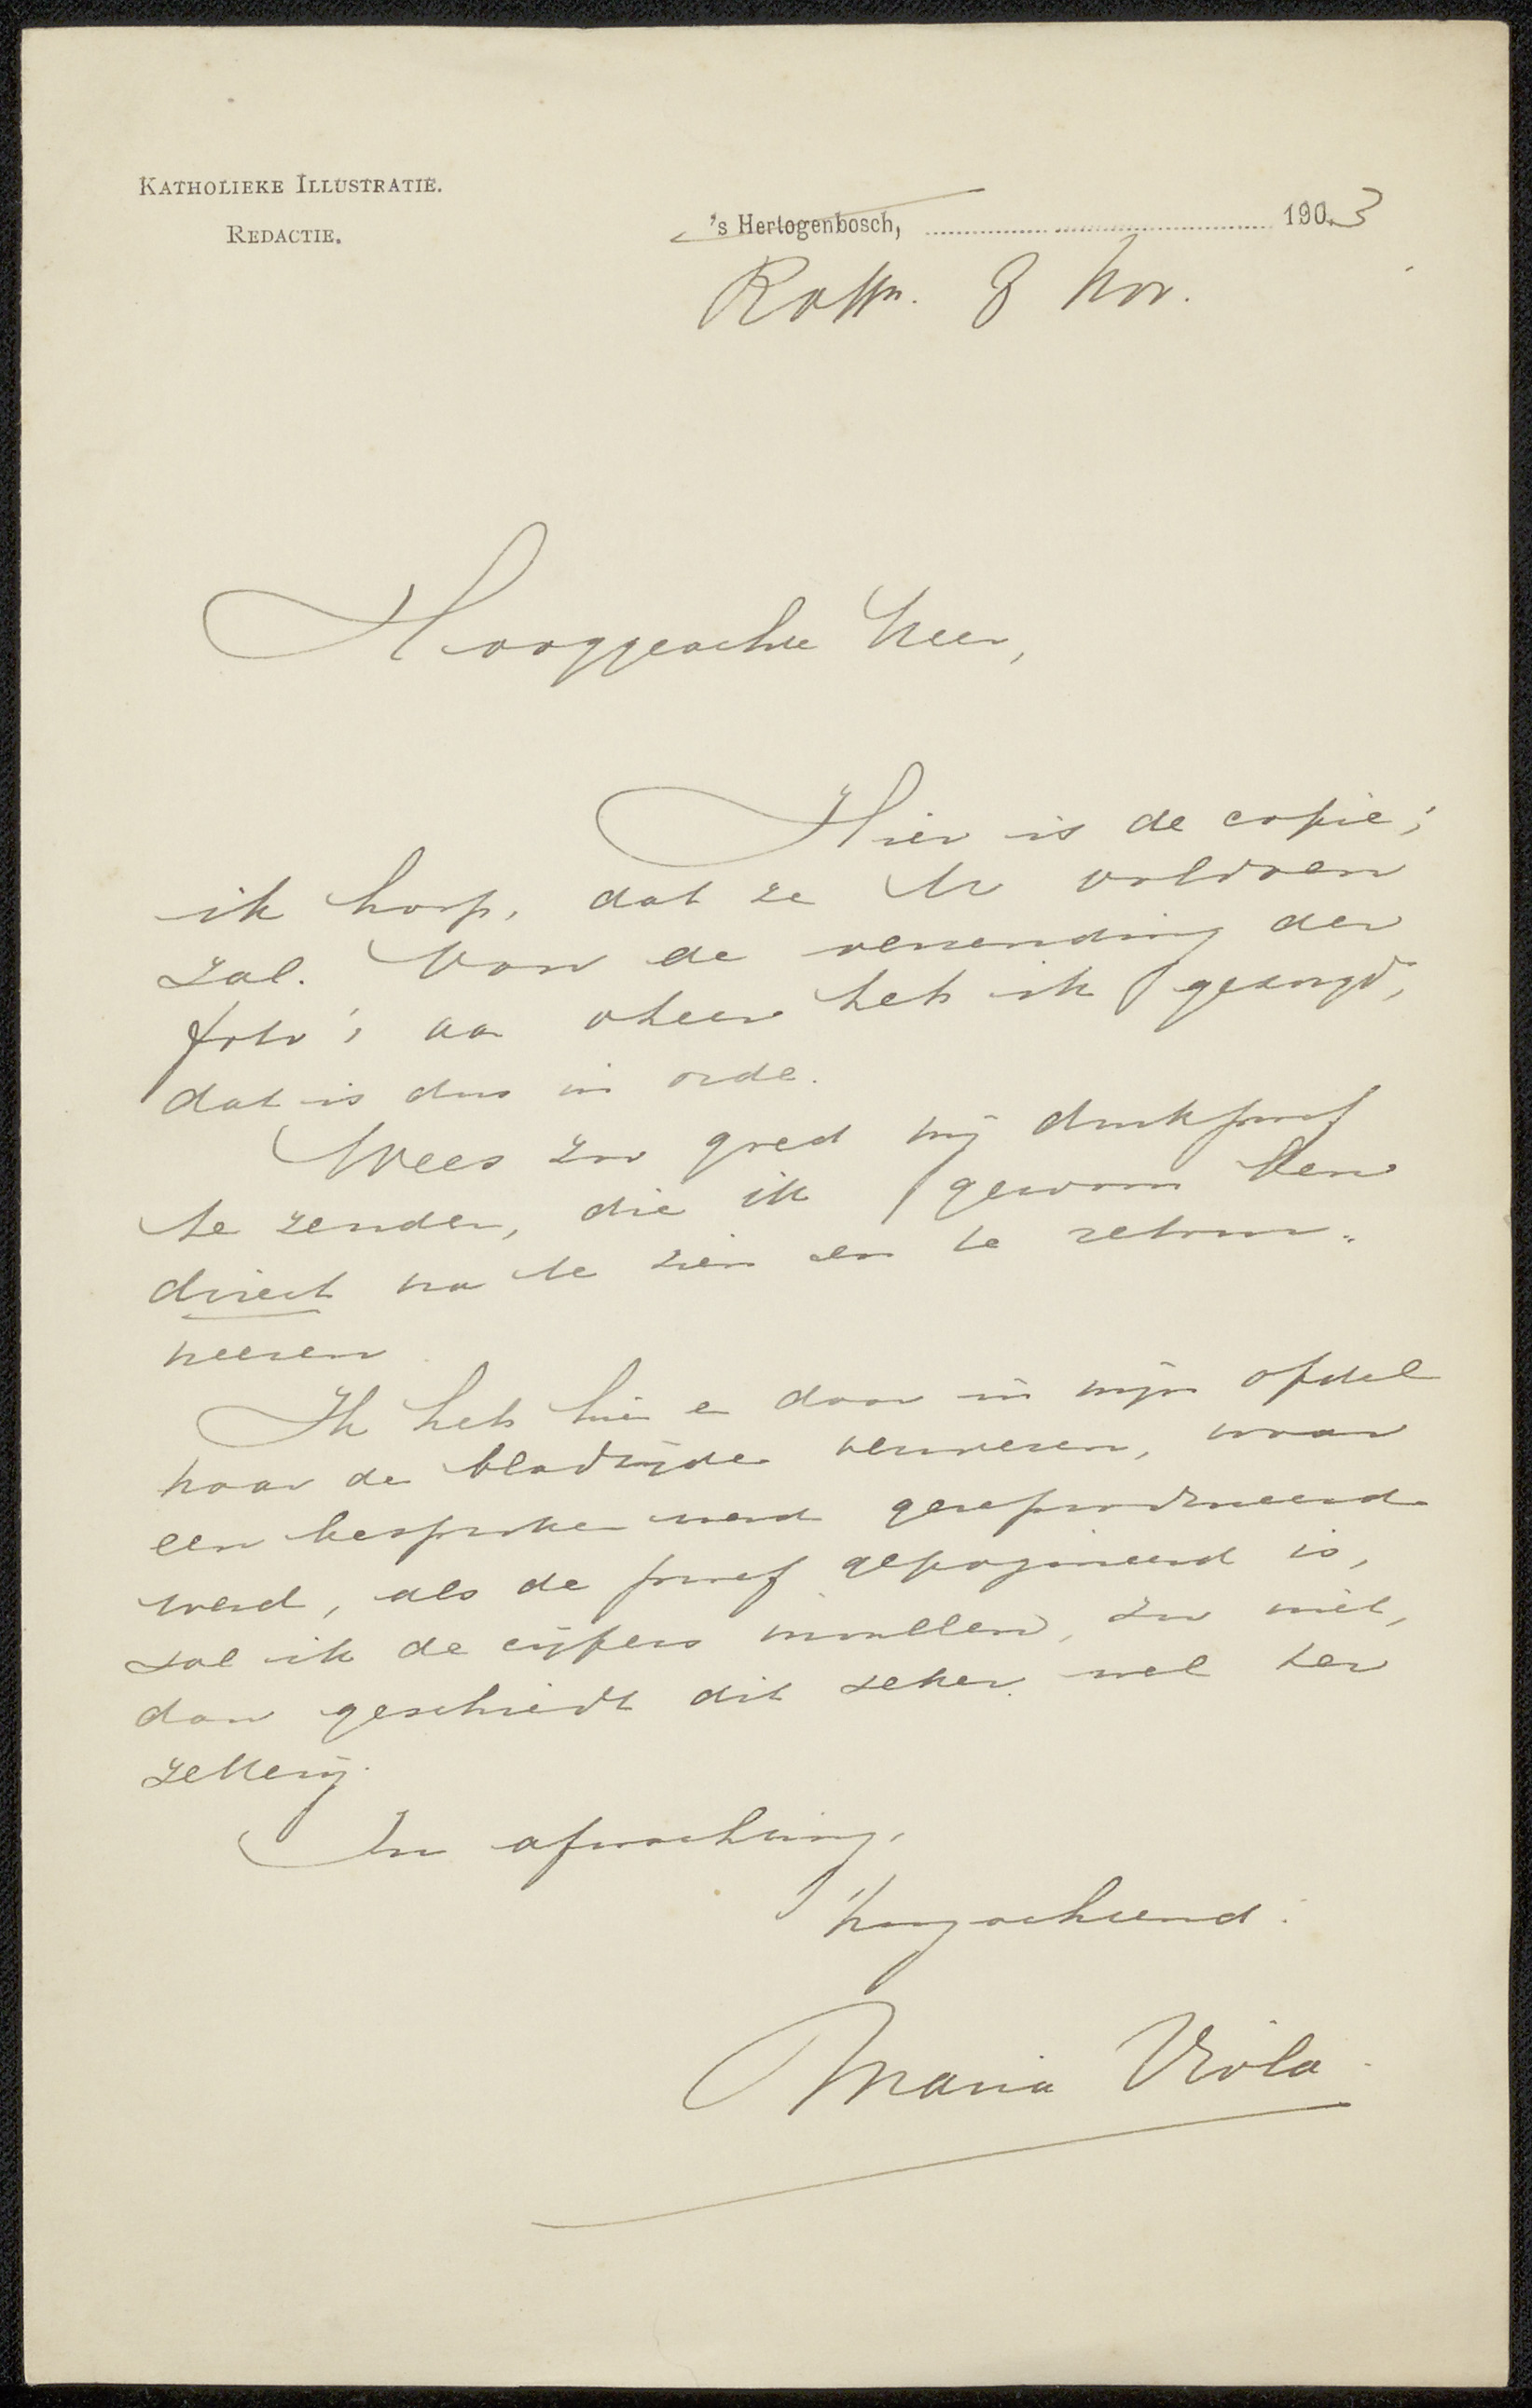 KATHOLIEKE ILLUSTRATIE.
REDACTIE.
's Hertogenbosch, 1903
8 Nov.
Hooggeachte Heer,
Hier is de copie;
ik hoop, dat ze U voldoen
zal. Voor de verzending der
foto's aa heb ik gezorgd,
dat is dus in orde.
Wees zoo goed mij drukproef
te zenden, die ik gewoon ben
direct na te zien en te retour-
neeren
Ik heb hier en daar in mijn opstel
naar de bladzijde verwezen, waar
een besproken werd gereproduceerd
werd, als de proef gepagineerd is,
zal ik de cijfers invullen, zoo niet,
dan geschiedt dit zeker wel ter
zetterij.
In afwachting,
hoogachtend:
Maria Viola.